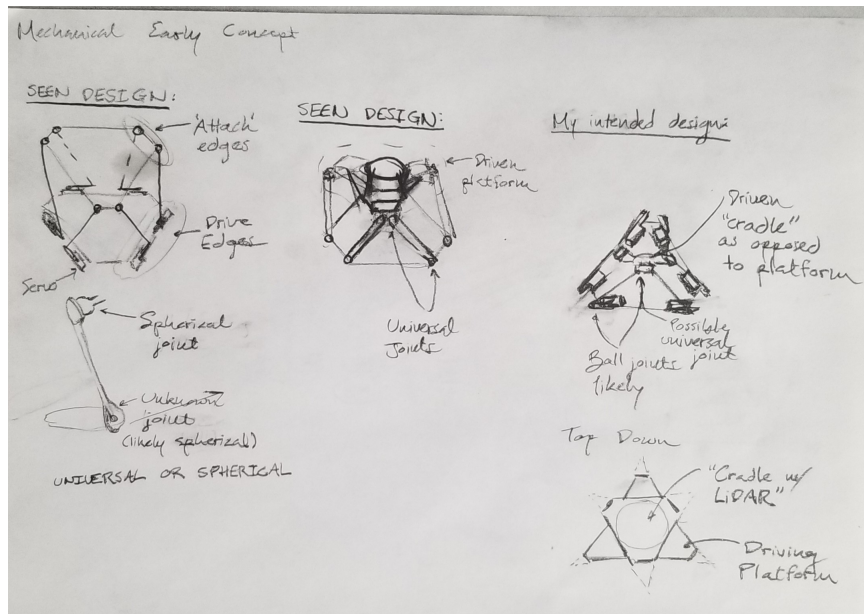 Mechanical Early Concept
SEEN DESIGN:
"Attach"
edges
Drive
Edges
Servo
Spherical
joint
Unknown
joint
(likely spherical)
UNIVERSAL OR SPHERICAL
SEEN DESIGN:
Driven
platform
Universal
Joints
My intended design:
Driven
"cradle"
as opposed
to platform
Possible
universal
joint
Ball joints
likely
Top Down
"Cradle w/
LiDAR"
Driving
Platform